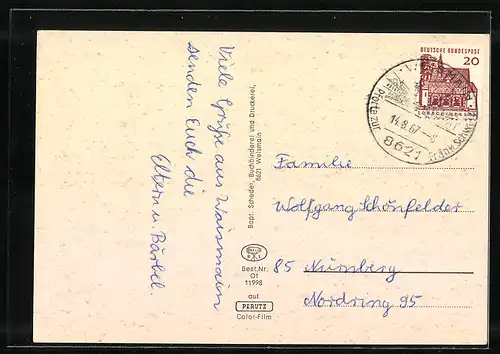 Viele Grüße aus Waismain
senden Euch die
Eltern u. Bärbel.
Bapt. Scheder, Buchbinderei und Druckerei,
8621 Weismain
Best.Nr.
Ot
11998
auf
PERUTZ
Color-Film
DEUTSCHE BUNDESPOST
20
14.8.67
Pforte zur Fränk. Schweiz
8621
Familie
Wolfgang Schönfelder
85 Nürnberg
Nordring 95